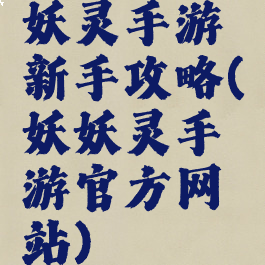 妖灵手游
新手攻略(
妖妖灵手
游官方网
站)